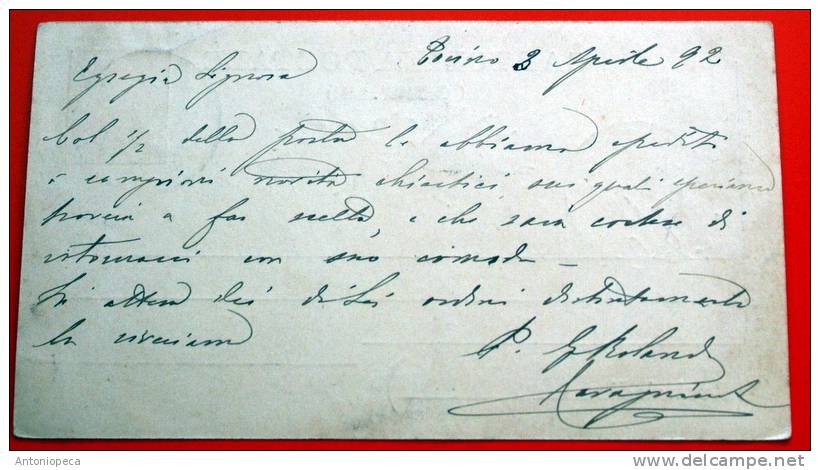 Torino 3 Aprile 92
Egregia Signora
Col 1/2 della posta le abbiamo spediti
i campioni novità chiestici sui quali speriamo
a far scelta, e che sarà cortese di
ritornarci con suo comodo –
In attesa dei di Lei ordini distintamente
la riveriamo
P. G Roland
Antoniopeca
www.delcampe.net